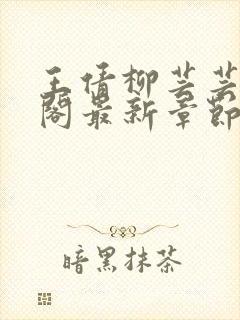 王倩柳芸芸
阁最新章节
暗黑抹茶